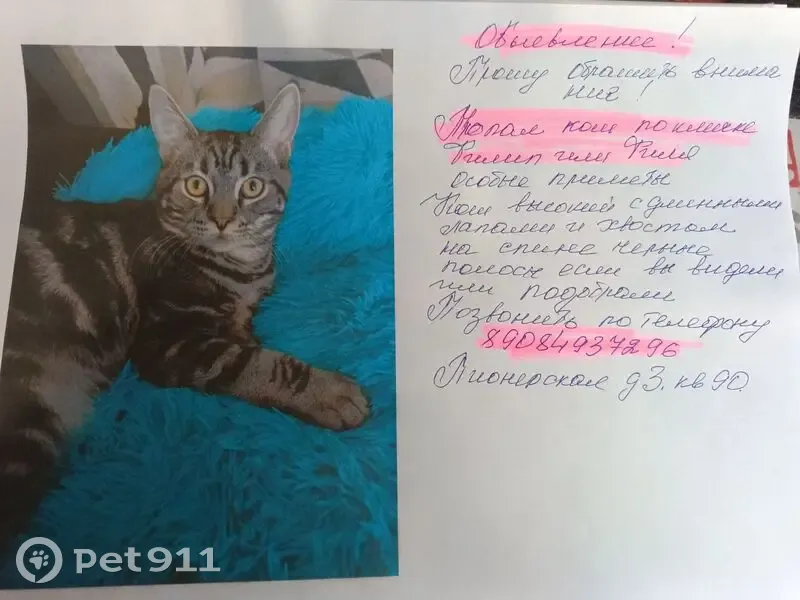 Объевление!
Прошу обратить внима
ние!
Пропал кот по кличке
Филип или Филя
особые приметы
Кот высокий с длинными
лапами и хвостом
на спине черные
полосы если вы видели
или подобрали
Позвонить по телефону
89084937296
Пионерская д3. кв 90.
pet911